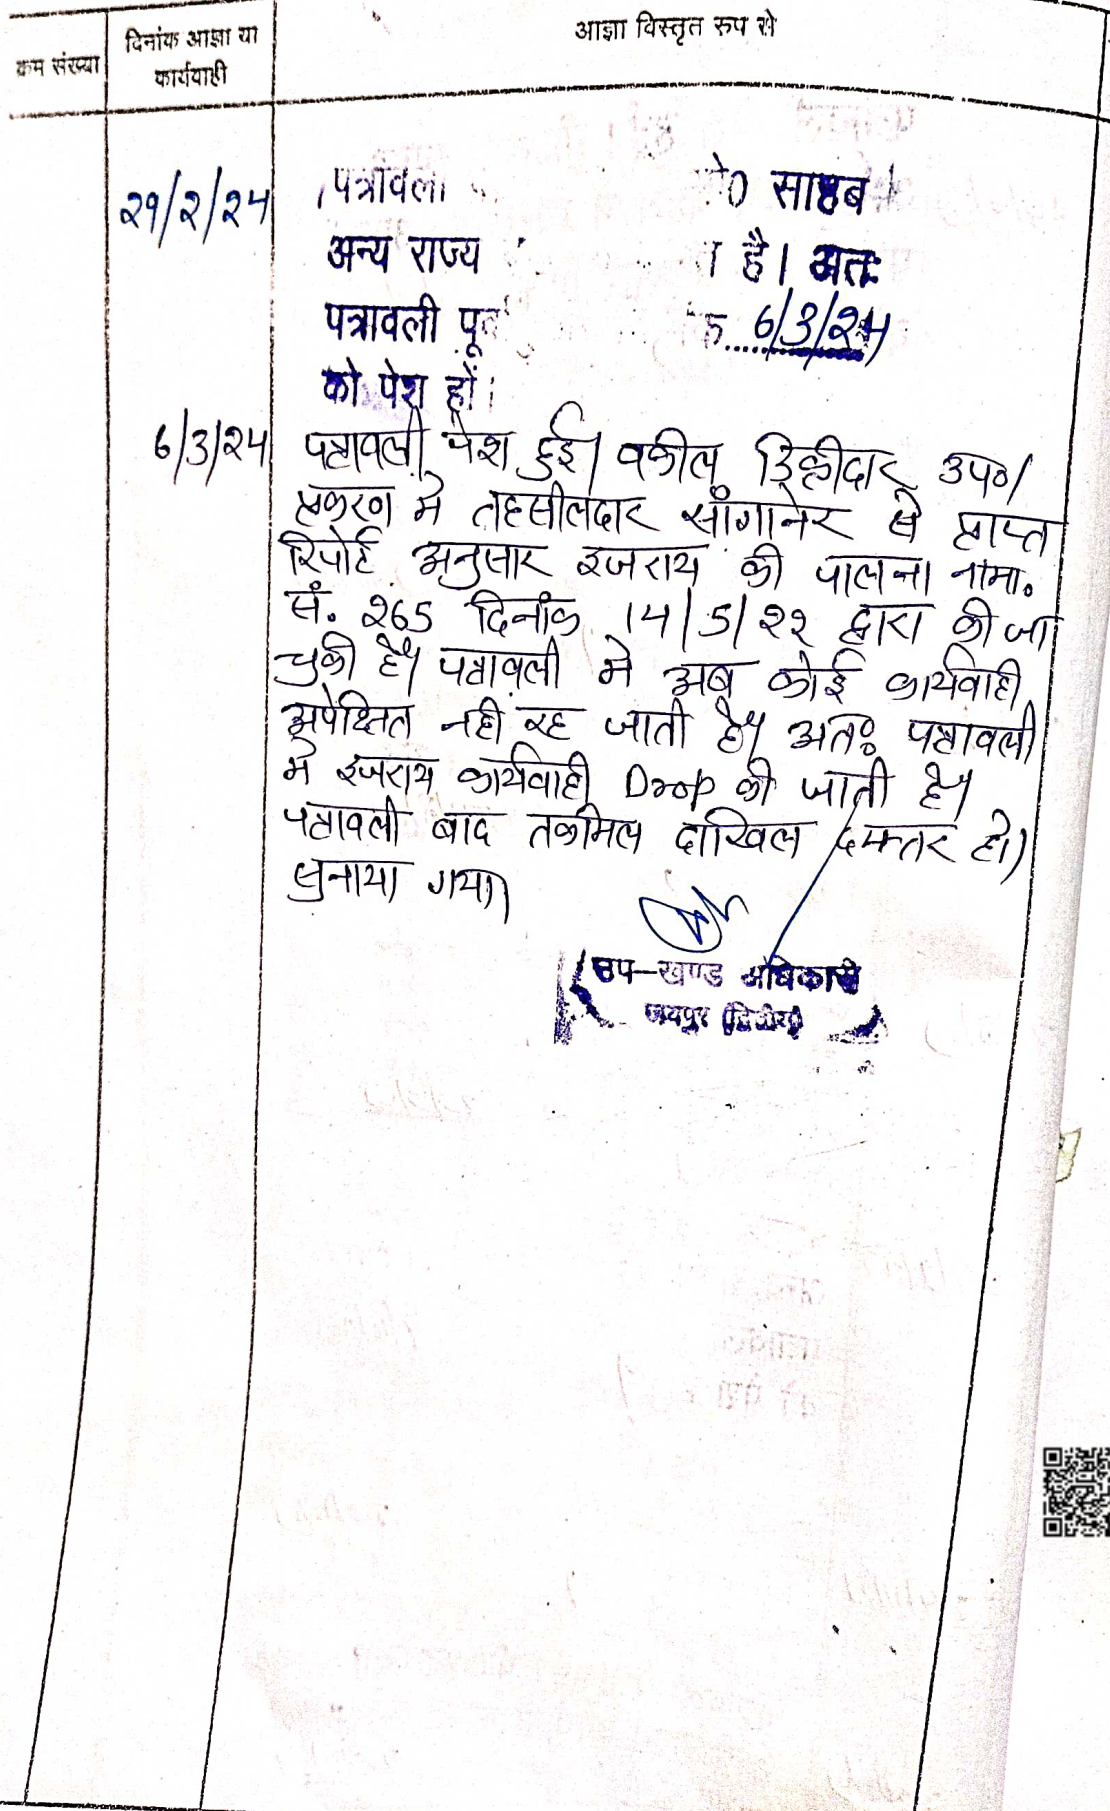 क्रम संख्या
दिनांक आज्ञा या
कार्यवाही
आज्ञा विस्तृत रुप से
२१/२/२५
पत्रावली साहब
अन्य राज्य है। अतः
पत्रावली ६/३/२५
को पेश हों।
६/३/२५
पत्रावली पेश हुई। वकील डिक्रीदार उप०।
प्रकरण में तहसीलदार सांगानेर से प्राप्त
रिपोर्ट अनुसार इजराय की पालना नामा.
सं. २६५ दिनांक 14/5/२२ द्वारा की जा
चुकी है। पत्रावली में अब कोई कार्यवाही
अपेक्षित नही रह जाती है। अतः पत्रावली
में इजराय कार्यवाही Drop की जाती है।
पत्रावली बाद तकमिल दाखिल दफ्तर हो।
सुनाया गया।
उप-खण्ड अधिकारी
जयपुर (द्वितीय)